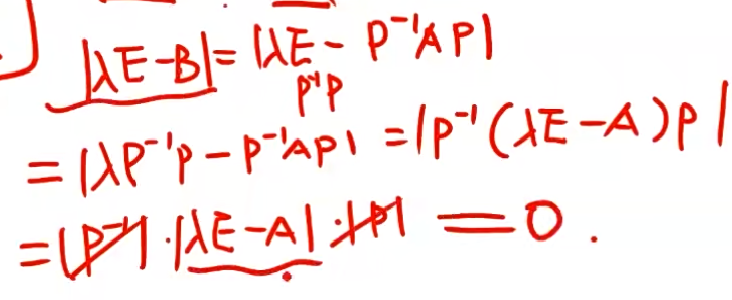 |λE-B| = |λE - P⁻¹AP|
P⁻¹P
= |λP⁻¹P - P⁻¹AP| = |P⁻¹(λE-A)P|
= |P⁻¹|·|λE-A|·|P| = 0.